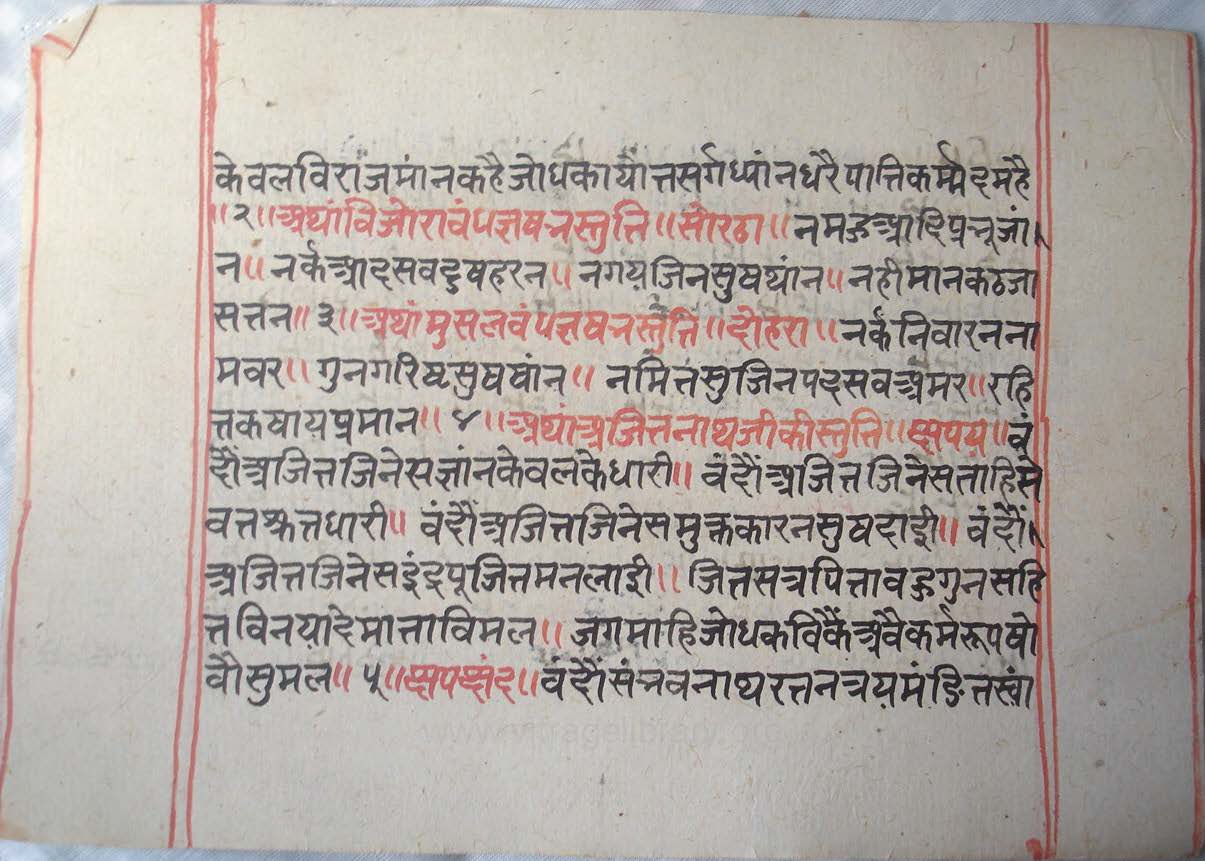 केवलविरांजमांनकहैजोधकायौत्तसर्गध्यांनधरैपात्तिकर्म्मदमहै
॥२॥अथांविजोरावंधज्ञषभस्तुत्ति॥सोरठा॥नमऊआदिप्रभूजां
न॥नर्कआदसवदुषहरन॥नगयजिनसुषथांन॥नहीमानकठजा
सत्तन॥३॥अथांमुसलवंधज्ञषभस्तुत्ति॥दोहरा॥नर्कनिवारनना
मवर॥गुनगरिष्टसुषषांन॥नमित्तसुजिनपदसवअमर॥रहि
त्तकषायप्रमान॥४॥अथांअजित्तनाथजीकीस्तुत्ति॥छपय॥वं
दौंअजित्तजिनेसज्ञांनकेवलकेधारी॥वंदौंअजित्तजिनेसताहिसे
वत्तछत्तधारी॥वंदौंअजित्तजिनेसमुक्तकारनसुषदाई॥वंदौं
अजित्तजिनेसइंदपूजित्तमनलाई॥जित्तसत्रपित्तावऊगुनसहि
त्तविनयादेमात्ताविमल॥जगमाहिजोधकविकैंअवैकर्मरूपषो
वौसुमल॥५॥छपछंद॥वंदौंसंभवनाथरत्तनत्रयमंडित्तस्वां